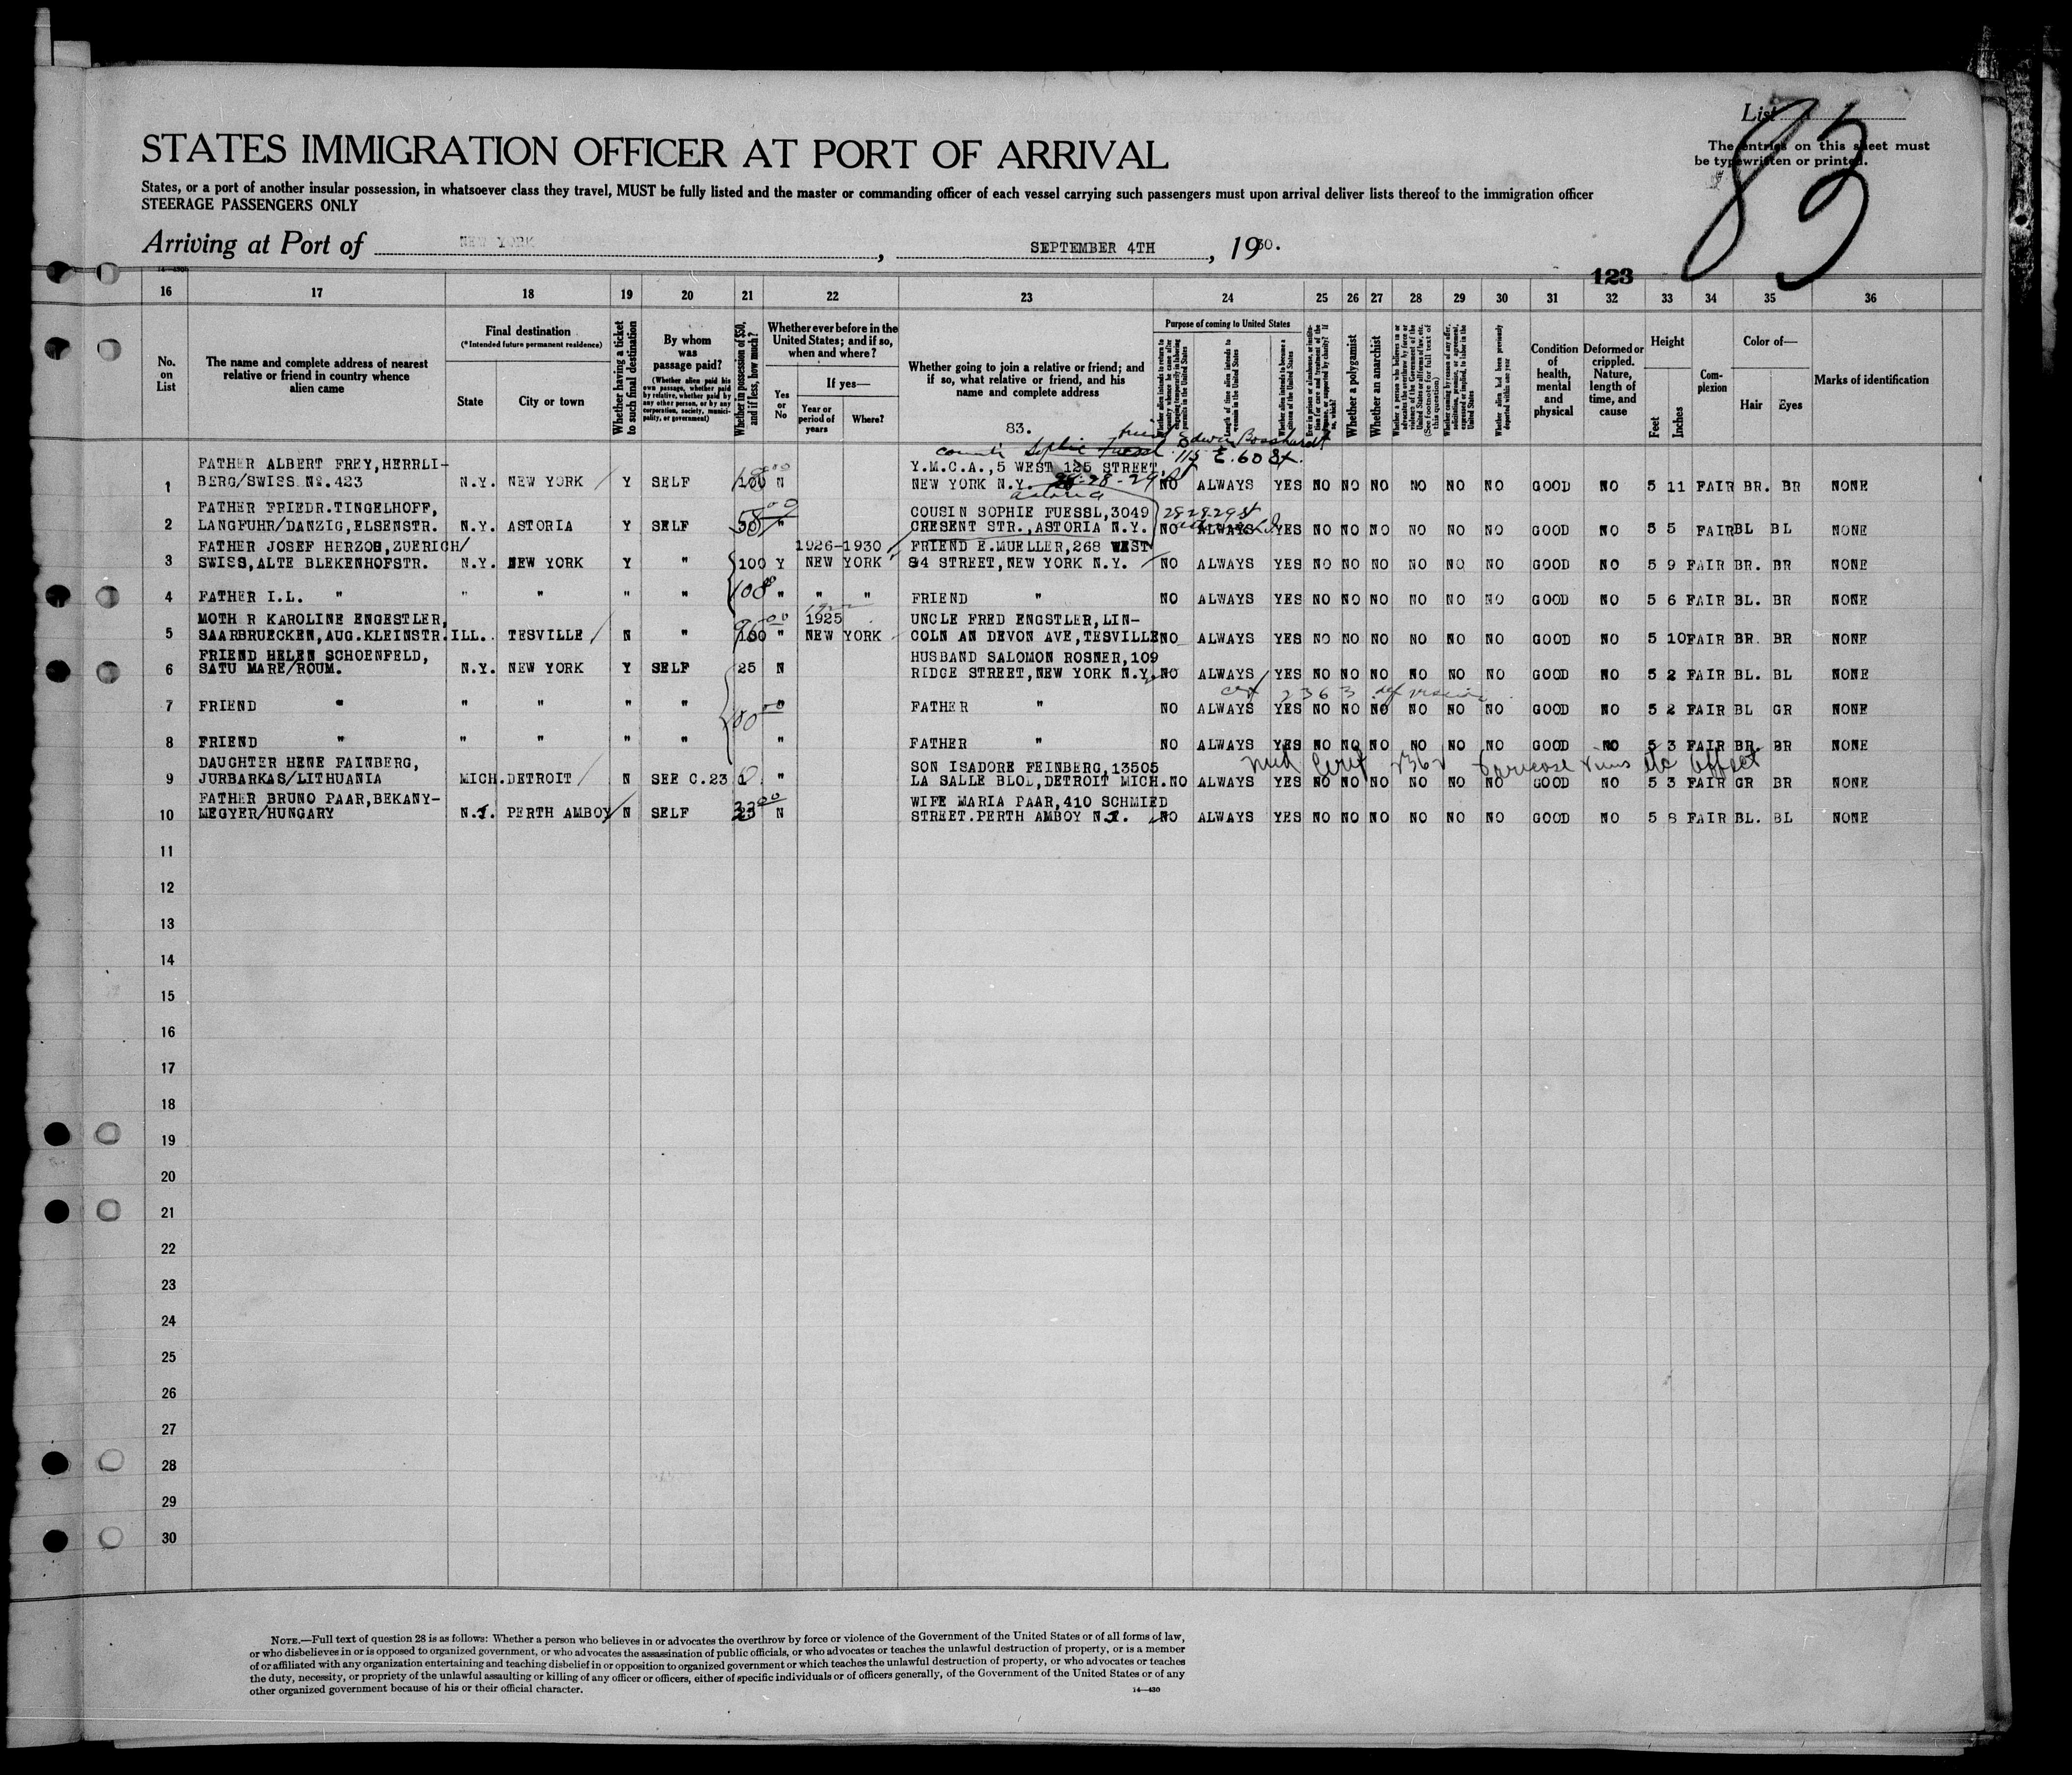 List
83
The entries on this sheet must
be typewritten or printed.
STATES IMMIGRATION OFFICER AT PORT OF ARRIVAL
States, or a port of another insular possession, in whatsoever class they travel, MUST be fully listed and the master or commanding officer of each vessel carrying such passengers must upon arrival deliver lists thereof to the immigration officer
STEERAGE PASSENGERS ONLY
Arriving at Port of NEW YORK, SEPTEMBER 4TH, 1930.
123
16 17 18 19 20 21 22 23 24 25 26 27 28 29 30 31 32 33 34 35 36
No. on List
The name and complete address of nearest relative or friend in country whence alien came
Final destination
(*Intended future permanent residence)
State
City or town
Whether having a ticket to such final destination
By whom was passage paid?
(Whether alien paid his own passage, whether paid by relative, whether paid by any other person, or by any corporation, society, municipality, or government)
Whether in possession of $50, and if less, how much?
Whether ever before in the United States; and if so, when and where?
Yes or No
If yes—
Year or period of years
Where?
Whether going to join a relative or friend; and if so, what relative or friend, and his name and complete address
83.
Purpose of coming to United States
Length of time alien intends to remain in the United States
Whether alien intends to become a citizen of the United States
Whether a polygamist
Whether an anarchist
Whether alien had been previously deported within one year
Condition of health, mental and physical
Deformed or crippled. Nature, length of time, and cause
Height
Feet
Inches
Complexion
Color of—
Hair
Eyes
Marks of identification
Sophie Fuessl
friend Edwin Bosshardt
115 E. 60 St.
FATHER ALBERT FREY,HERRLI- Y.M.C.A.,5 WEST 125 STREET,
1 BERG/SWISS No.423 N.Y. NEW YORK Y SELF 100 N NEW YORK N.Y. NO ALWAYS YES NO NO NO NO NO NO GOOD NO 5 11 FAIR BR. BR NONE
28-28-29 St
Astoria
FATHER FRIEDR.TINGELHOFF, COUSIN SOPHIE FUESSL,3049 28-28-29 St
2 LANGFUHR/DANZIG,ELSENSTR. N.Y. ASTORIA Y SELF 50 " CRESENT STR.,ASTORIA N.Y. NO ALWAYS YES NO NO NO NO NO NO GOOD NO 5 5 FAIR BL BL NONE
FATHER JOSEF HERZOG,ZUERICH/ 1926-1930 FRIEND E.MUELLER,268 WEST
3 SWISS,ALTE BLEKENHOFSTR. N.Y. NEW YORK Y " 100 Y NEW YORK 84 STREET,NEW YORK N.Y. NO ALWAYS YES NO NO NO NO NO NO GOOD NO 5 9 FAIR BR. BR NONE
4 FATHER I.L. " " " " " 100 " " " FRIEND " NO ALWAYS YES NO NO NO NO NO NO GOOD NO 5 6 FAIR BL. BR NONE
MOTH R KAROLINE ENGESTLER, 1925 UNCLE FRED ENGSTLER,LIN-
5 SAARBRUECKEN,AUG.KLEINSTR. ILL. TESVILLE N " 100 " NEW YORK COLN AN DEVON AVE,TESVILLE NO ALWAYS YES NO NO NO NO NO NO GOOD NO 5 10 FAIR BR. BR NONE
FRIEND HELEN SCHOENFELD, HUSBAND SALOMON ROSNER,109
6 SATU MARE/ROUM. N.Y. NEW YORK Y SELF 25 N RIDGE STREET,NEW YORK N.Y. NO ALWAYS YES NO NO NO NO NO NO GOOD NO 5 2 FAIR BL. BL NONE
2363 def vision
7 FRIEND " " " " " 100.00 " FATHER " NO ALWAYS YES NO NO NO NO NO NO GOOD NO 5 2 FAIR BL GR NONE
8 FRIEND " " " " " " FATHER " NO ALWAYS YES NO NO NO NO NO NO GOOD NO 5 3 FAIR BR. BR NONE
med Cert 2362 varicose veins etc affect
DAUGHTER HENE FAINBERG, SON ISADORE FEINBERG,13505
9 JURBARKAS/LITHUANIA MICH. DETROIT N SEE C.23 " LA SALLE BLOL,DETROIT MICH. NO ALWAYS YES NO NO NO NO NO NO GOOD NO 5 3 FAIR GR BR NONE
FATHER BRUNO PAAR,BEKANY- WIFE MARIA PAAR,410 SCHMIED
10 MEGYER/HUNGARY N.J. PERTH AMBOY N SELF N STREET.PERTH AMBOY N.J. NO ALWAYS YES NO NO NO NO NO NO GOOD NO 5 8 FAIR BL. BL NONE
11
12
13
14
15
16
17
18
19
20
21
22
23
24
25
26
27
28
29
30
NOTE.—Full text of question 28 is as follows: Whether a person who believes in or advocates the overthrow by force or violence of the Government of the United States or of all forms of law,
or who disbelieves in or is opposed to organized government, or who advocates the assassination of public officials, or who advocates or teaches the unlawful destruction of property, or is a member
of or affiliated with any organization entertaining and teaching disbelief in or opposition to organized government or which teaches the unlawful destruction of property, or who advocates or teaches
the duty, necessity, or propriety of the unlawful assaulting or killing of any officer or officers, either of specific individuals or of officers generally, of the Government of the United States or of any
other organized government because of his or their official character.
14—430